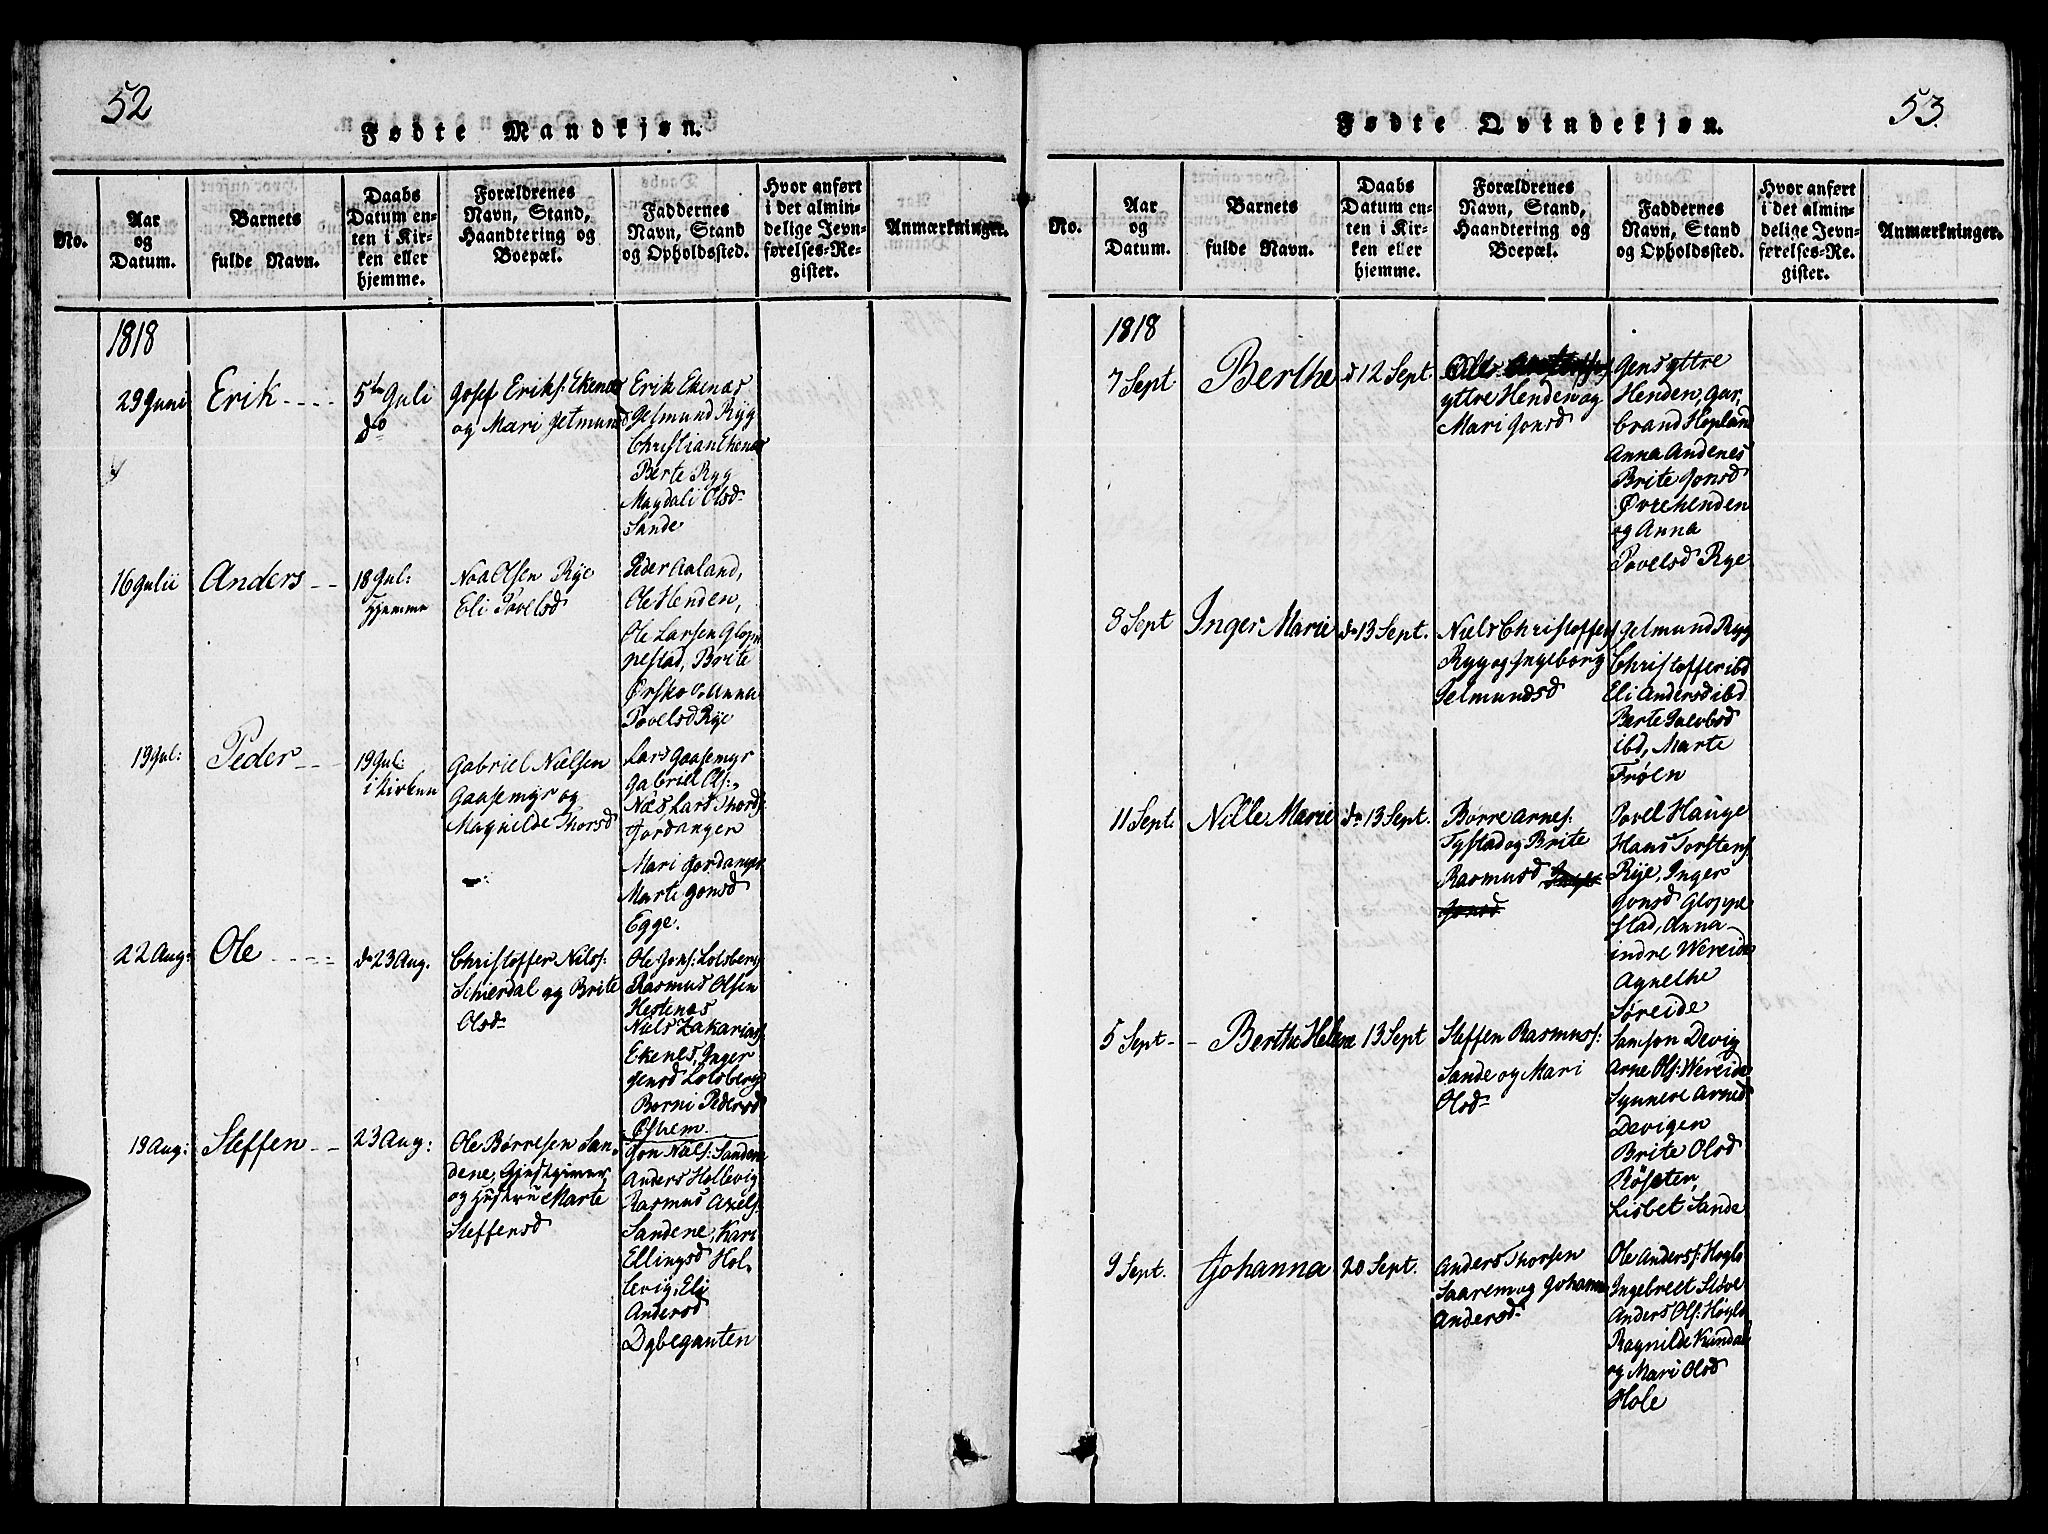 52
Fødte Mandkjøn.
No.
Aar
og
Datum.
Barnets
fulde Navn.
Daabs
Datum en-
ten i Kir-
ken eller
hjemme.
Forældrenes
Navn, Stand,
Haandtering og
Boepæl.
Faddernes
Navn, Stand
og Opholdssted.
Hvor anført
i det almin-
delige Jevn-
førelses-Re-
gister.
Anmærkninger.
1818
29 Juni
Erik
5te Juli
do
Josef Eriks: Ekenæs
og Mari Jetmunsd
Erik Ekenas
Gelmund Ryg
Christian Ekenæs
Berte Ryg
Magdali Olsd
Sande
16 Julii
Anders
18 Jul:
Hjemme
Noa Olsen Rye
Eli Povelsd
Peder Aaland,
Ole Henden,
Ole Larsen Glop
pestad, Brite
Ørsko o. Anna
Povelsd Rye
19 Jul:
Peder
19 Jul:
i Kirken
Gabriel Nielsen
Gaasemyr og
Magnilde Thorsd
Lars Gaasemyr
Gabriel Ols:
Næs, Lars Thords:
Jordanger
Mari Jordanger
Marte Jonsd
Egge.
22 Aug:
Ole
do 23 Aug.
Christoffer Nils:
Schierdal og Brite
Olsd
Ole Jons: Lotsberg
Rasmus Olsen
Hestenæs
Niels Zakarias:
Ekenes, Inger
Jensd Lotsberg
Borni Pedersd
Oshem.
19 Aug:
Steffen
23 Aug:
Ole Børresen San
dene, Gjestgiver
og Hustru Marte
Steffensd
Jon Niels: Sandene
Anders Hollevig
Rasmus Axels:
Sandene, Kari
Ellingsd Hol
levig, Eli
Andersd
Dybegauten
53
Fødte Qvindekjøn.
No.
Aar
og
Datum.
Barnets
fulde Navn.
Daabs
Datum en-
ten i Kir-
ken eller
hjemme.
Forældrenes
Navn, Stand,
Haandtering og
Boepæl.
Faddernes
Navn, Stand
og Opholdssted.
Hvor anført
i det almin-
delige Jevn-
førelses-Re-
gister.
Anmærkninger.
1818
7 Sept
Berthe
d 12 Sept.
Ole
yttre Henden og
Mari Jonsd
Jens yttre
Henden, Gar,
brand Hopland
Anna Andenes
Brite Jonsd
Øvrehenden
og Anna
Povelsd Rye
8 Sept
Inger Marie
do 13 Sept.
Niels Christoffers
Ryg og Ingeborg
Jelmundsd
Jelmund Ryg
Christoffer ibd
Eli Andersd ibd
Berte Jacobsd
ibd, Marte
Frøen
11 Sept.
Nille Marie
do 13 Sept.
Børre Arnes:
Tystad og Brite
Rasmusd
Jonsd
Povel Hauge
Hans Torstens
Rye, Inger
Jonsd Gloppe
stad, Anna
indre Wereide
Agnethe
Søreide
5 Sept
Berthe Helene
13 Sept
Steffen Rasmuss:
Sande og Mari
Olsd
Samson Devig
Arne Ols: Wereide
Synneve Arnesd
Devigen
Brite Olsd
Røseten,
Lisbet Sande
9 Sept.
Johanna
20 Sept.
Anders Thorsen
Saarem og Johanna
Andersd
Ole Anders: Hogle
Ingebreet Støve
Anders Ols: Høgle
Ragnilde Kundal
og Mari Olsd
Hole